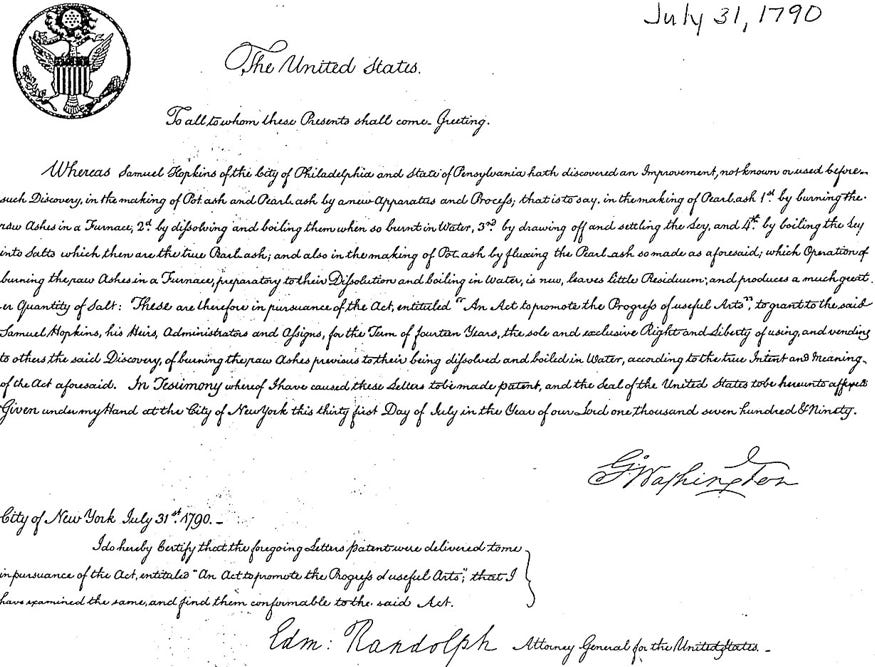 July 31, 1790
The United States.
To all to whom these Presents shall come. Greeting.
Whereas Samuel Hopkins of the City of Philadelphia and State of Pensylvania hath discovered an Improvement, not known or used before
such Discovery, in the making of Pot ash and Pearl ash by a new Apparatus and Process; that is to say, in the making of Pearl ash 1st by burning the
raw Ashes in a Furnace, 2d by dissolving and boiling them when so burnt in Water, 3rd by drawing off and settling the Ley, and 4th by boiling the Ley
into Salts which then are the true Pearl ash; and also in the making of Pot ash by fluxing the Pearl ash so made as aforesaid; which Operation of
burning the raw Ashes in a Furnace, preparatory to their Dissolution and boiling in Water, is new, leaves little Residuum; and produces a much great
er Quantity of Salt: These are therefore in pursuance of the Act, entituled "An Act to promote the Progress of useful Arts", to grant to the said
Samuel Hopkins, his Heirs, Administrators and Assigns, for the Term of fourteen Years, the sole and exclusive Right and Liberty of using, and vending
to others the said Discovery, of burning the raw Ashes previous to their being dissolved and boiled in Water, according to the true Intent and Meaning
of the Act aforesaid. In Testimony whereof I have caused these Letters to be made patent, and the Seal of the United States to be hereunto affixed
Given under my Hand at the City of New York this thirty first Day of July in the Year of our Lord one thousand seven hundred & Ninety.
G. Washington
City of New York July 31st. 1790. –
I do hereby Certify that the foregoing Letters patent were delivered to me
in pursuance of the Act, entituled "An Act to promote the Progress of useful Arts"; that I
have examined the same, and find them conformable to the said Act.
Edm: Randolph Attorney General for the United States. –